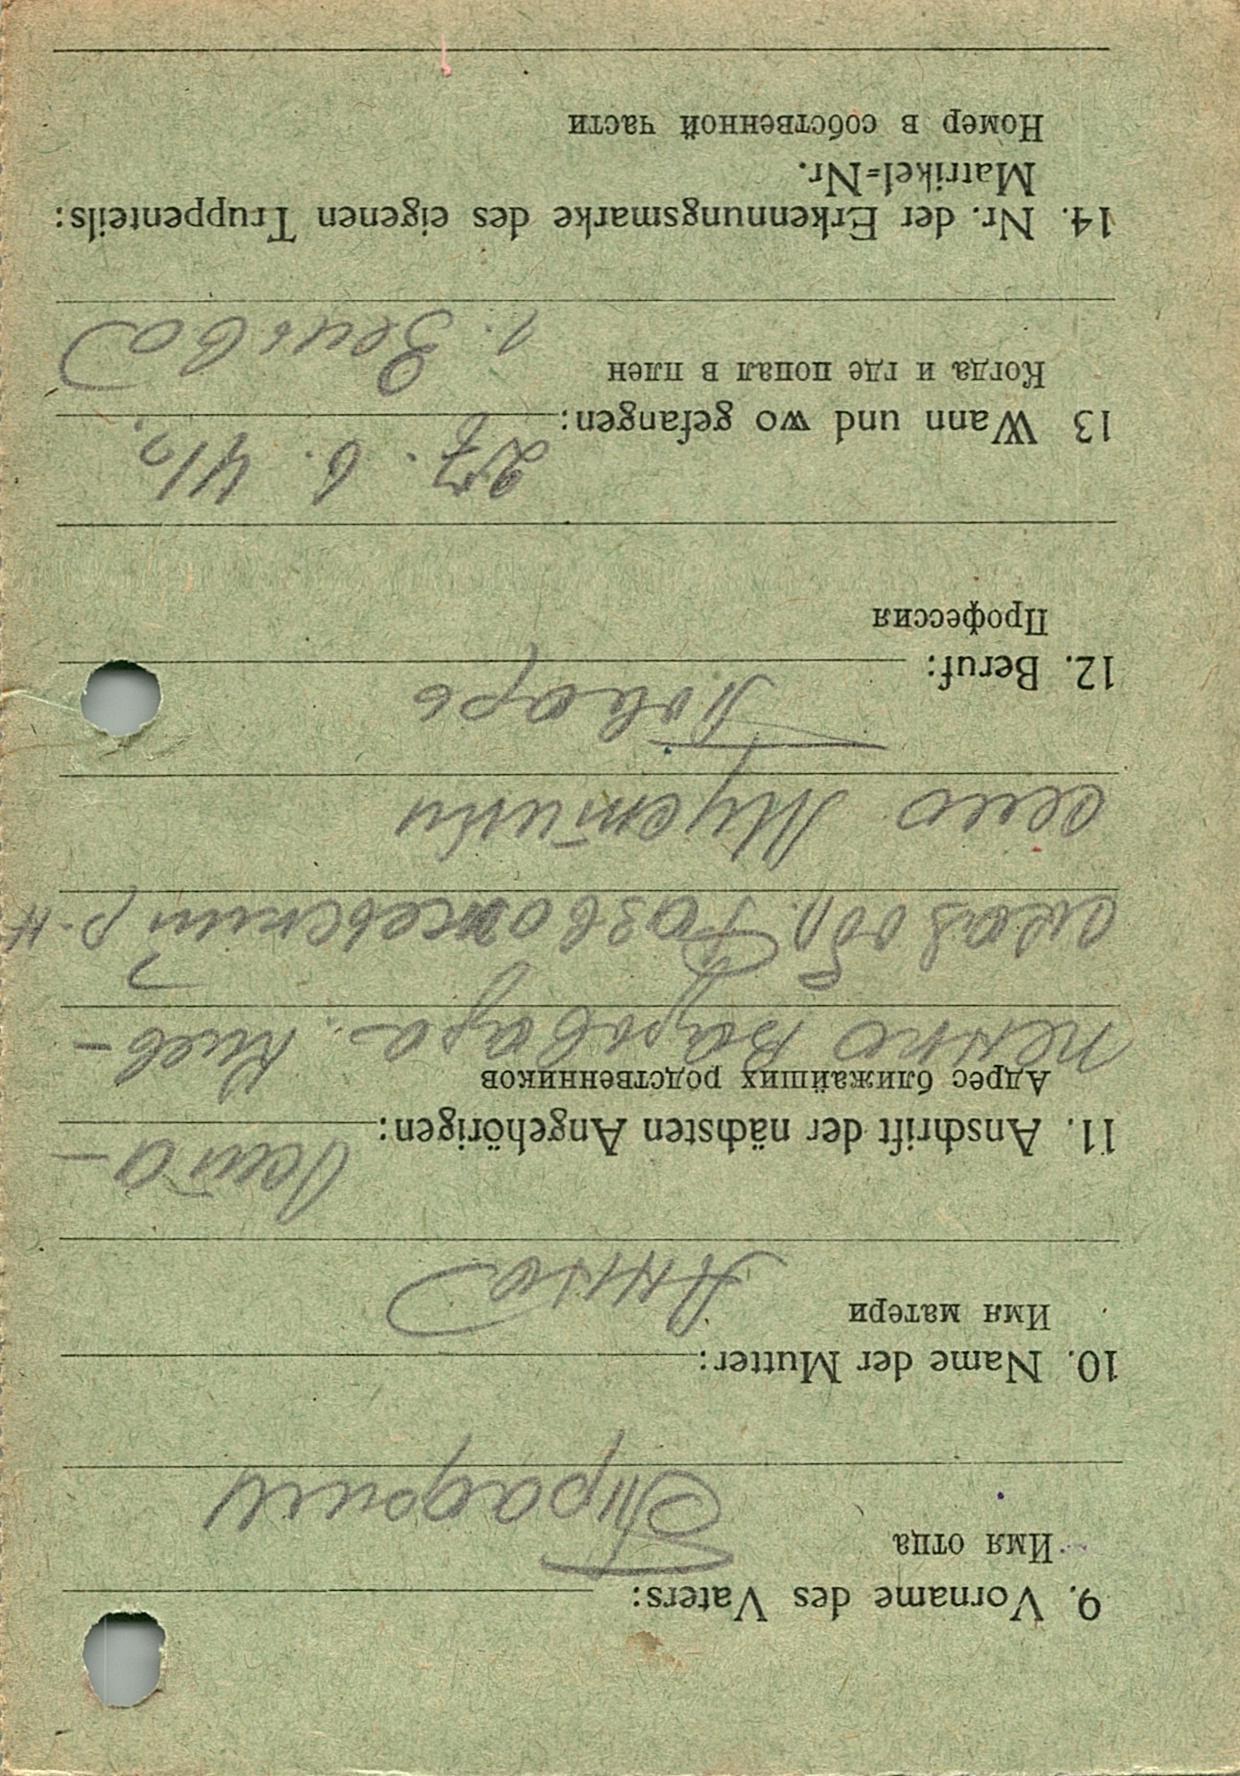 9. Vorname des Vaters:
Имя отца
Трофим
10. Name der Mutter:
Имя матери
Анна
11. Anschrift der nächsten Angehörigen:
Адрес ближайших родственников
пенко Варвара. Киев-
ская обл. Розважевский р-н
село
12. Beruf:
Повар
Профессия
13 Wann und wo gefangen:
27. 6. 41г.
Когда и где попал в плен
14. Nr. der Erkennungsmarke des eigenen Truppenteils:
Matrikel=Nr.
Номер в собственной части